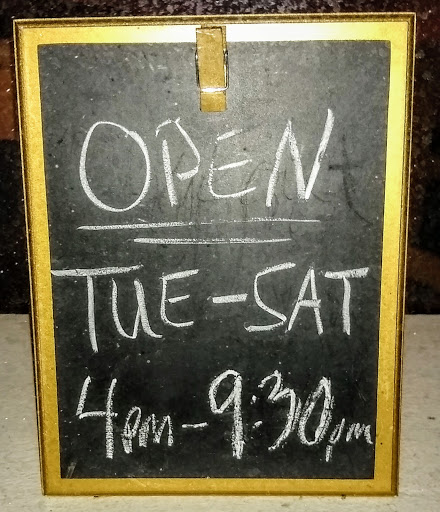 OPEN
TUE-SAT
4pm-9:30pm